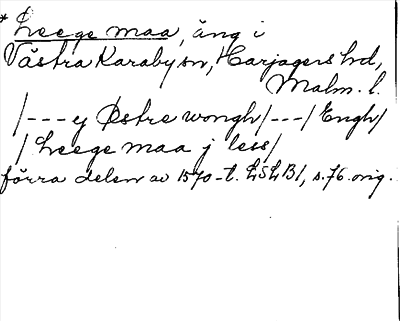 * Leege maa, äng i
Västra Karaby sn, Harjagers hd,
Malm. l.
/---y Østre wongh/---/Engh/
/Leege maa j less/
förra delen av 1570-t. LSLB1, s.76. orig.